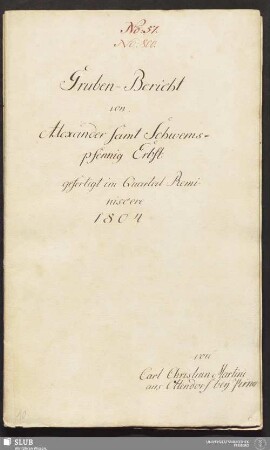 No: 57.
No: 500.
Gruben-Bericht
von
Alexander samt Schweins-
pfennig Erbst
gefertigt im Quartal Remi-
niscere
1804
von
Carl Christian Martini
aus Ottendorf bey Pirna
SLUB